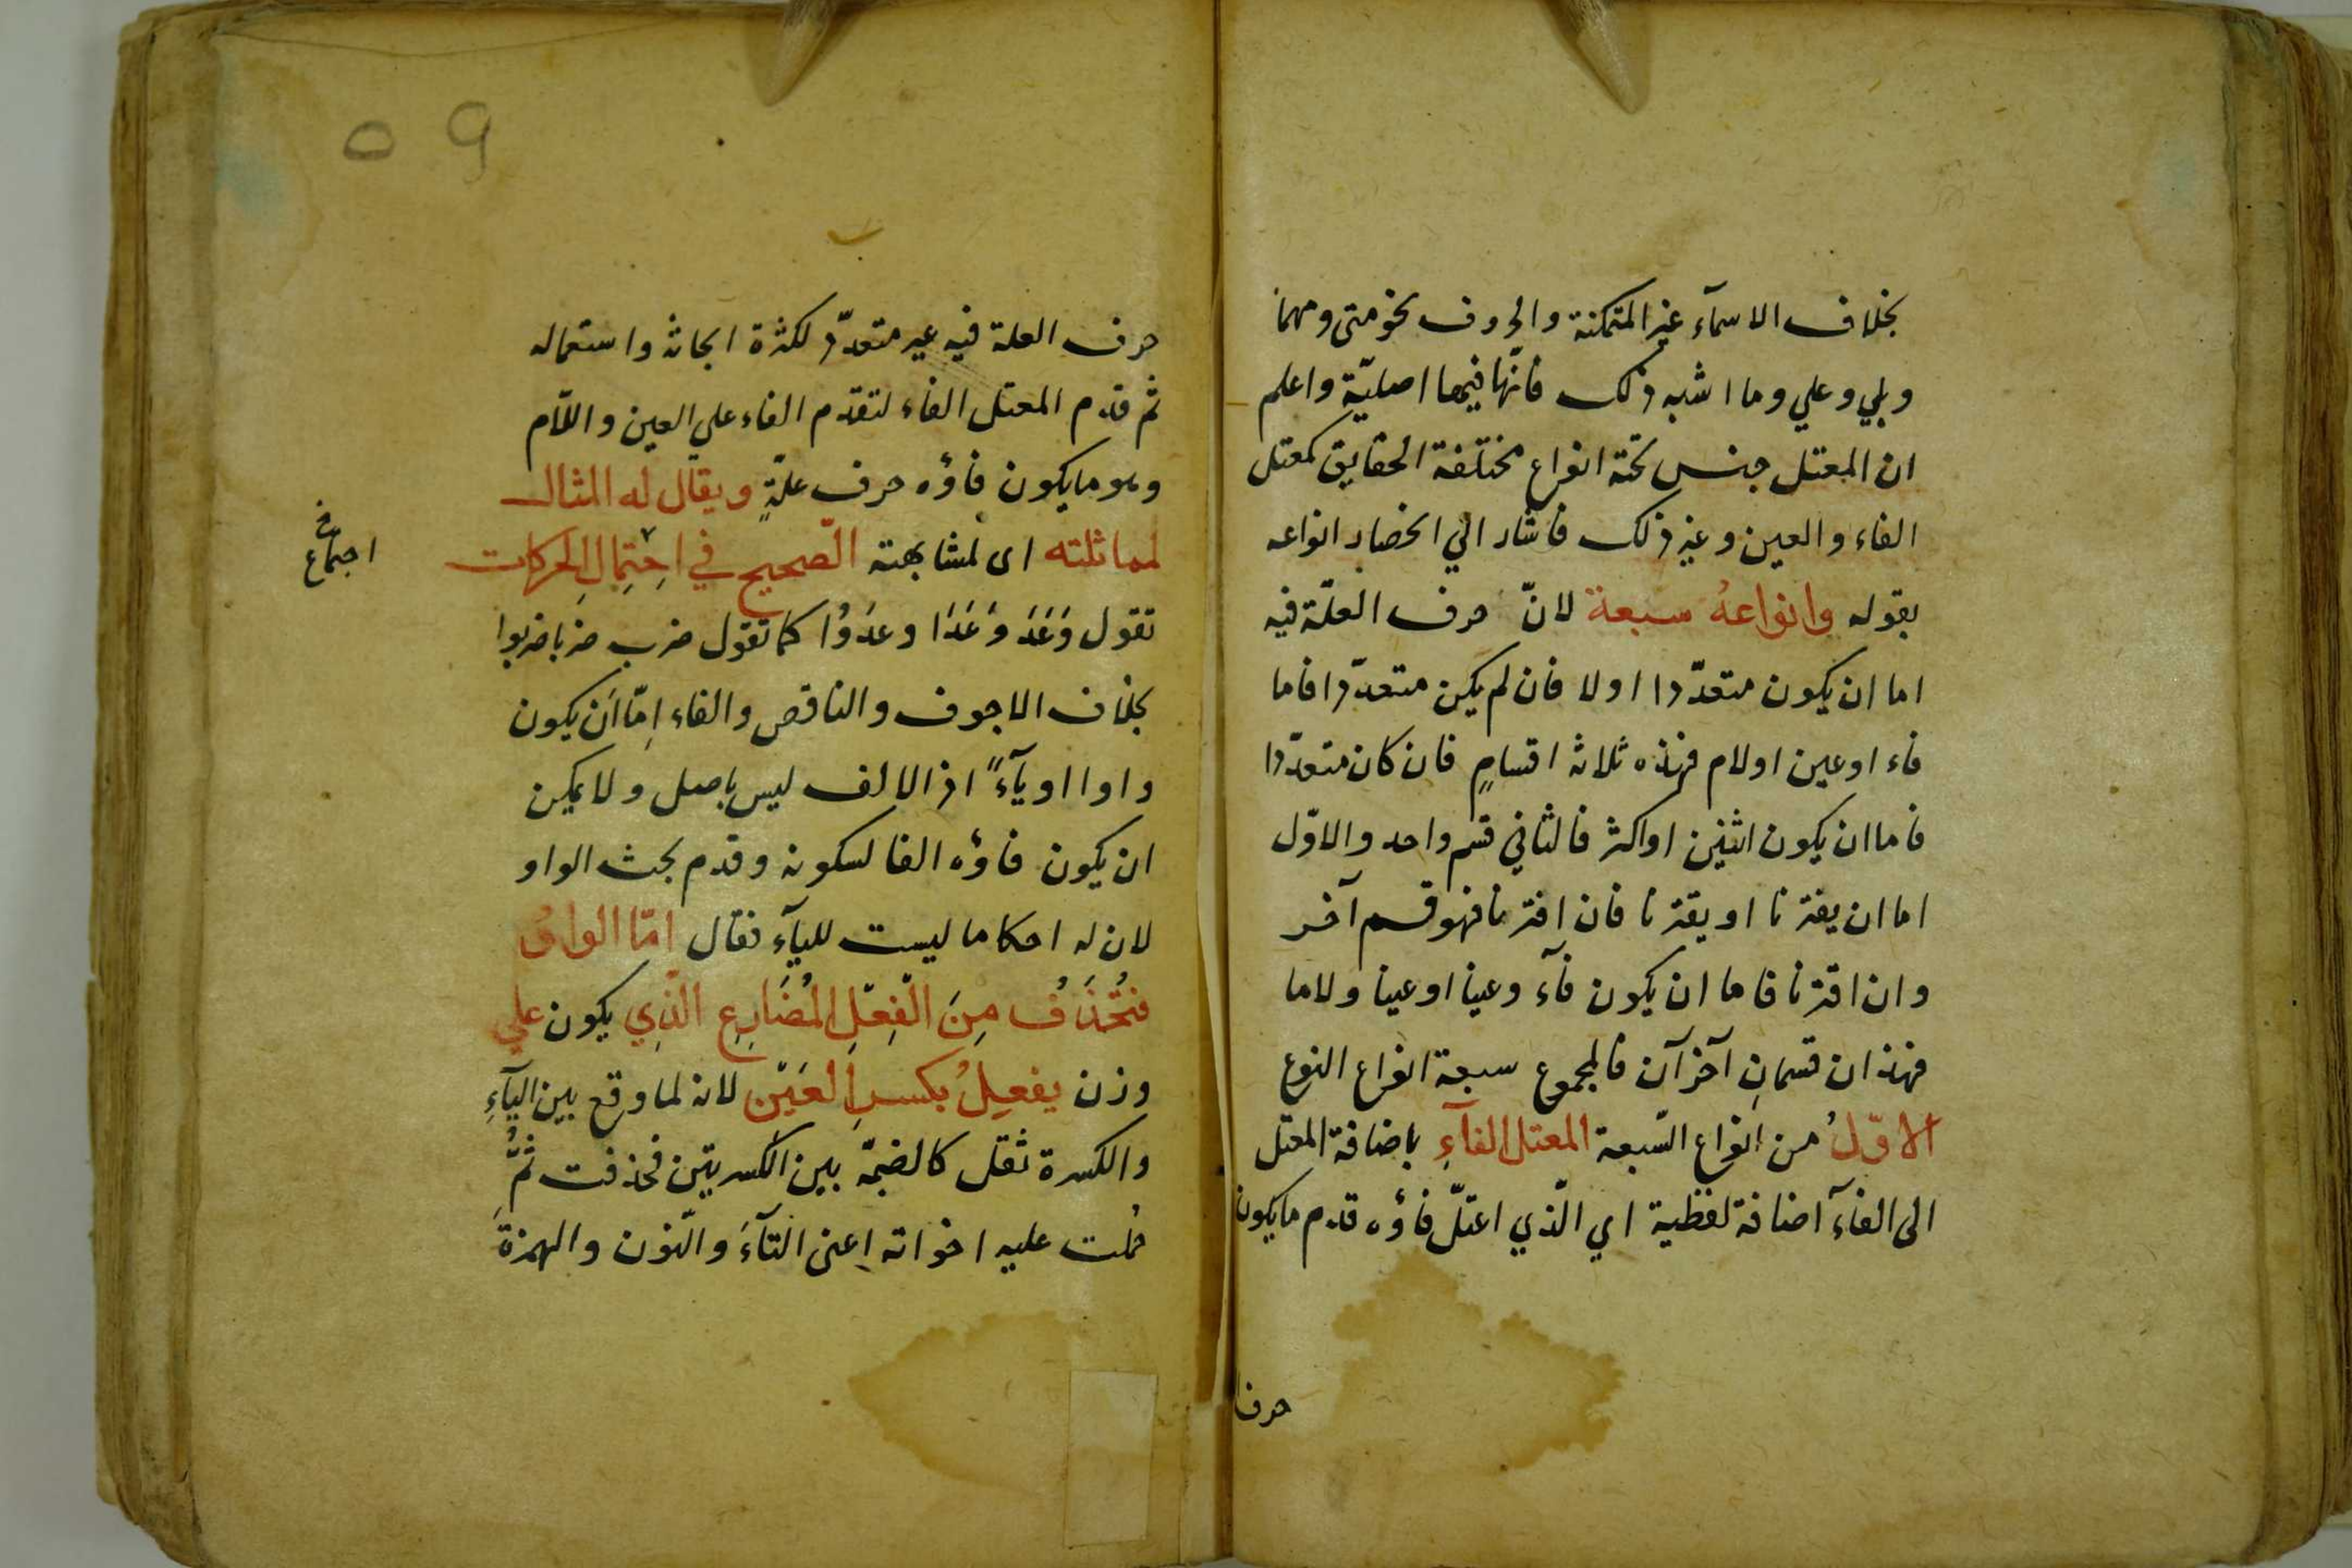 بخلاف الاسمآء غير المتمكنة والحروف نحو متى ومهما
وبلي وعلي وما اشبه ذلك فانّها فيها اصليّة واعلم
ان المعتل جنس تحته انواع مختلفة الحقايق كمعتل
الفاء والعين وغير ذلك فاشار الي انحصار انواعه
بقوله وانواعهُ سبعة لانّ حرف العلّة فيه
اما ان يكون متعدّدا اولا فان لم يكن متعدّدا فاما
فاء اوعين اولام فهذه ثلاثة اقسامٍ فان كان متعدّدا
فاما ان يكون اثنين اواكثر فالثاني قسم واحد والاوّل
اما ان يفترنا او يقترنا فان افترنا فهو قسم آخر
وان اقترنا فاما ان يكون فآء وعينا اوعينا ولاما
فهذان قسمانِ آخرآن فالمجموع سبعة انواع النوع
الاوّلُ من انواع السّبعة المعتل الفآءِ باضافة المعتل
الى الفآء اضافة لفظية اي الّذي اعتلّ فاؤه قدم مايكون
حرف
٥٩
حرف العلة فيه غير متعدّد لكثرة ابحاثه واستعماله
ثم قدم المعتل الفاء لتقدّم الفاء علي العين واللّام
وهو مايكون فاؤه حرف علّةٍ ويقال له المثال
لمماثلته اى لمشابهته الصّحيح في احْتِمالِ الحركات
اجتماع خ
تقول وَعَدَ وَعَدَا وعدَوُا كما تقول ضرب ضربا ضربوا
بخلاف الاجوف والناقص والفاء اِمّا اَن يكون
واوا اويآءً اذ الالف ليس باصل ولا يمكن
ان يكون فاؤه الفا لسكونه وقدم بحث الواو
لان له احكاما ليست لليآء فقال امّا الواوُ
فتُحْذَفُ مِنَ الْفِعْلِ المُضَارِعِ الّذِي يكون علي
وزن يفعِلُ بكسرِ العَيْنِ لانه لما وقع بين اليآءِ
والكسرة ثقل كالضمّة بين الكسرتين فحذفت ثُمَّ
حملت عليه اخواته اعنى التآءَ والنّون والهمزةَ